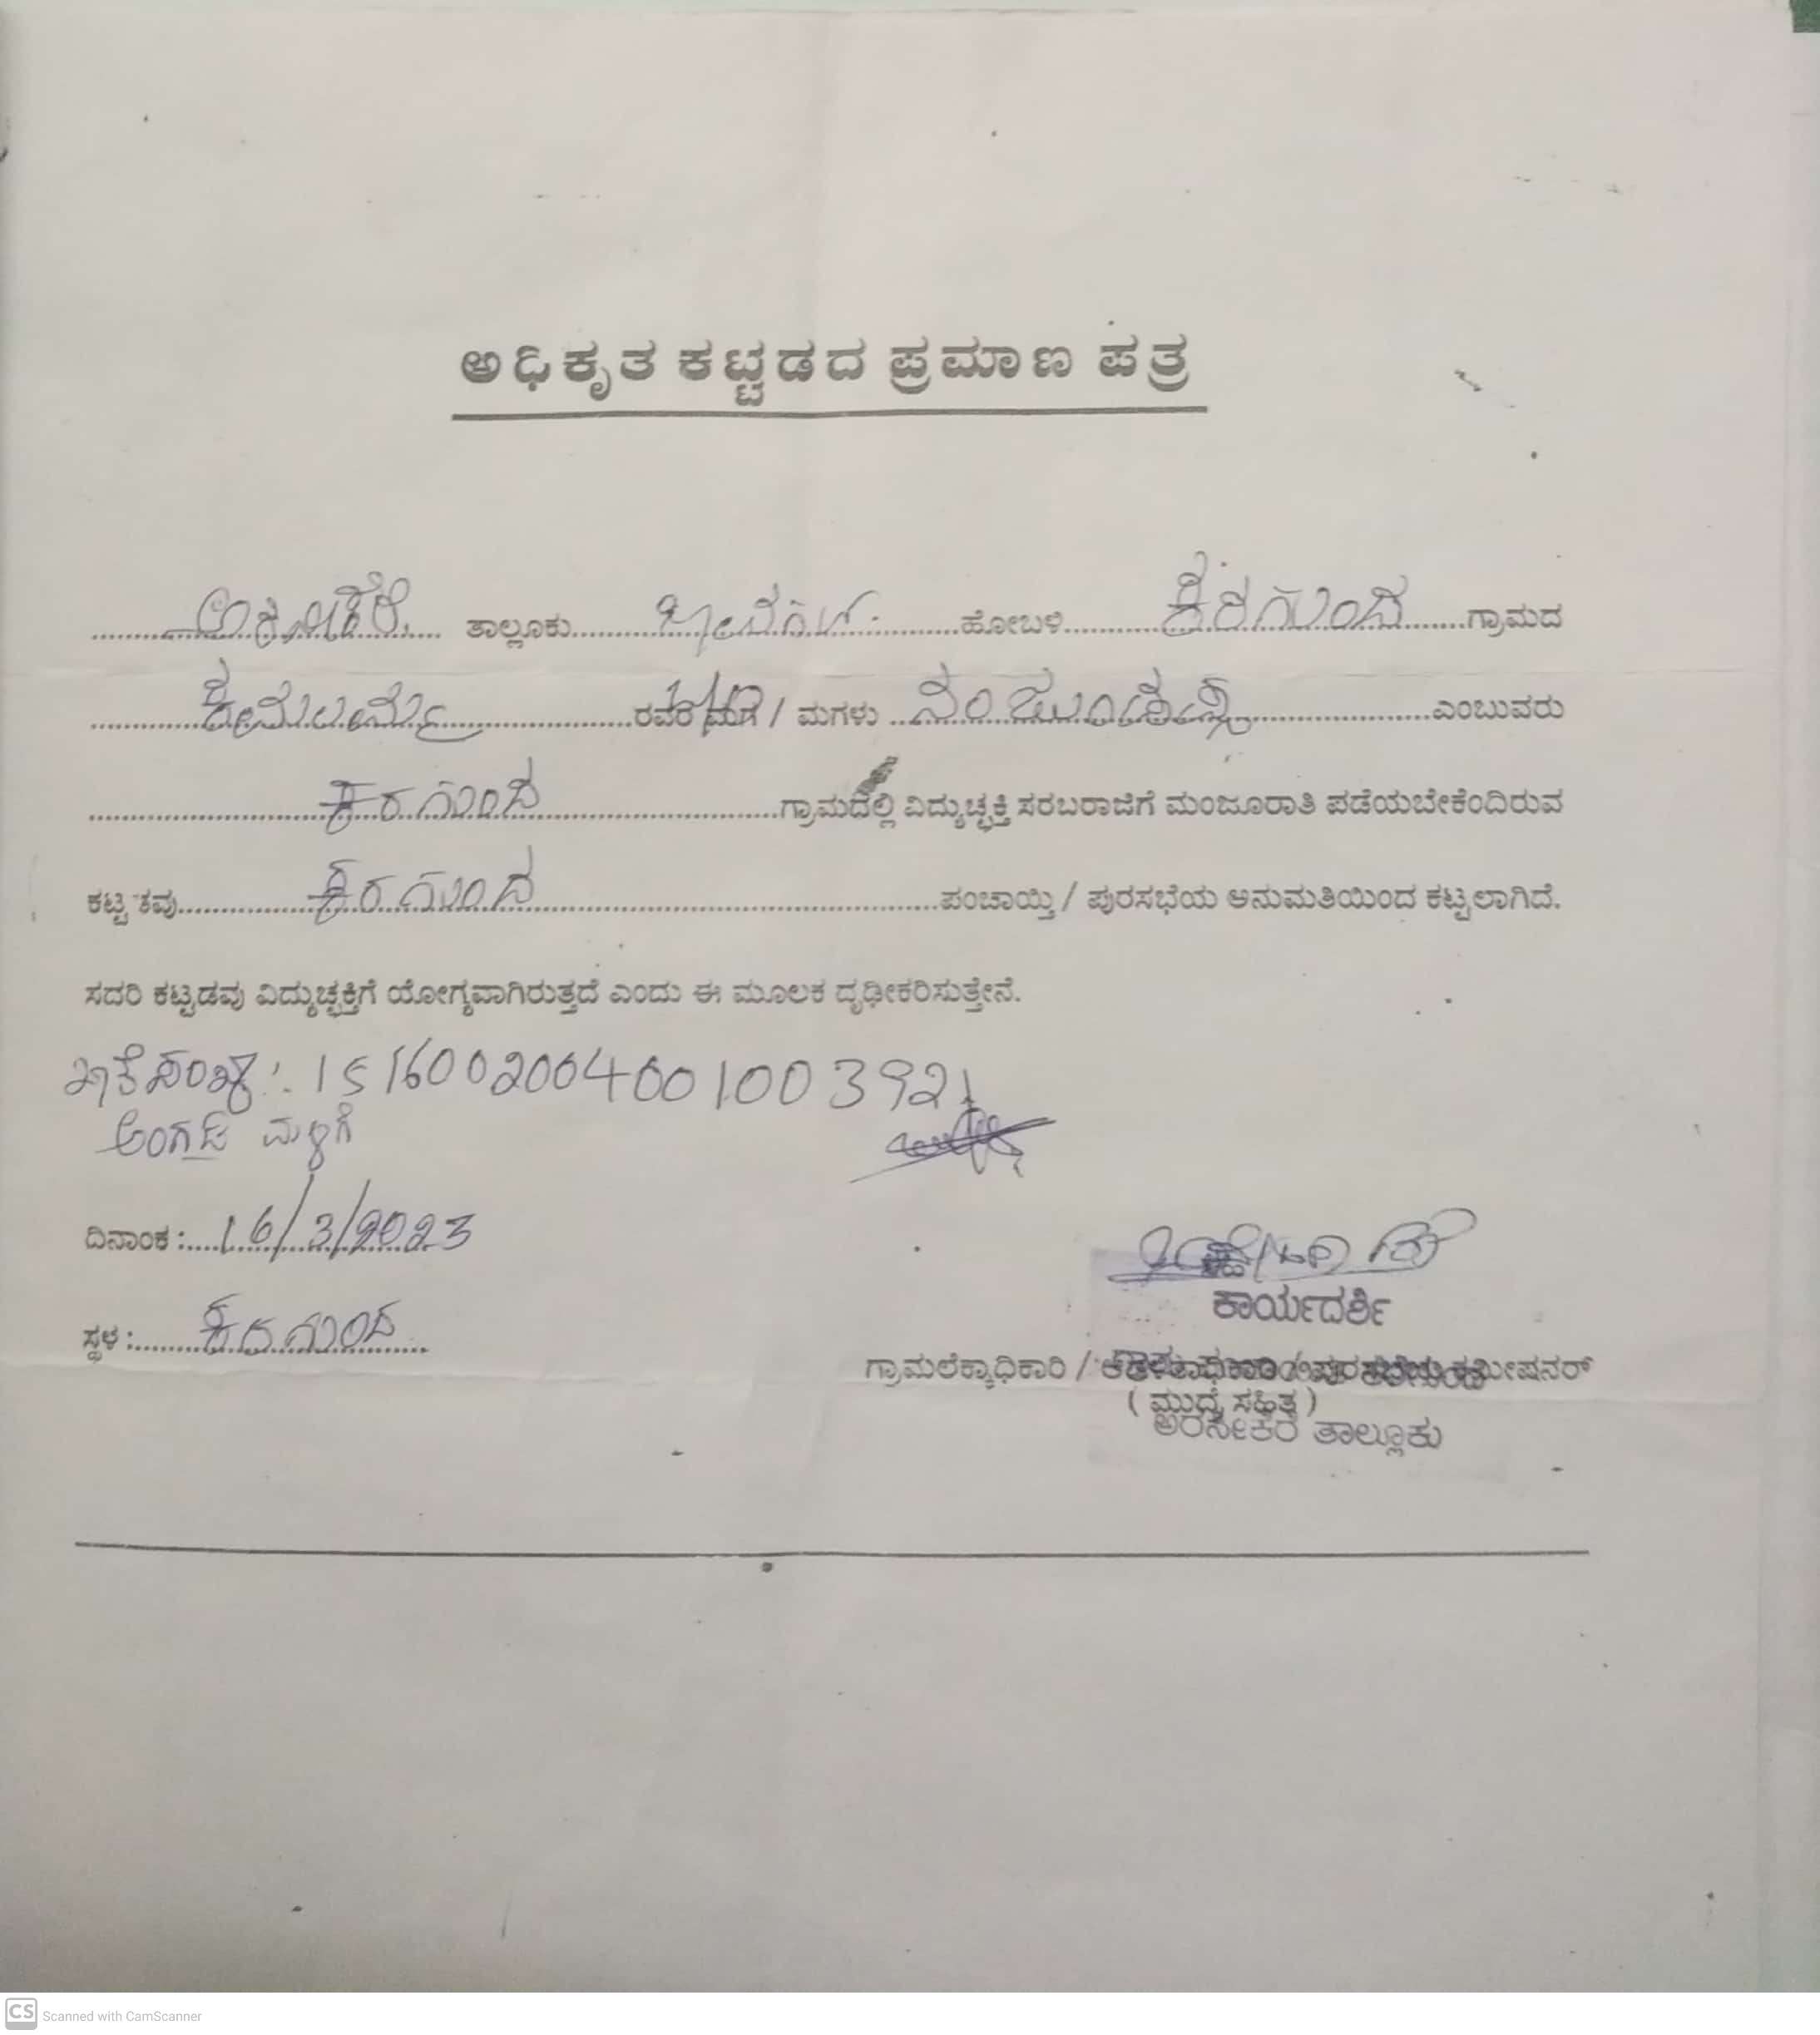 ಅಧಿಕೃತ ಕಟ್ಟಡದ ಪ್ರಮಾಣ ಪತ್ರ
ತಾಲ್ಲೂಕು ಹೋಬಳಿ ಕರಗುಂದ ಗ್ರಾಮದ
ರವರ ಮಗ / ಮಗಳು ನಂಜುಂಡಪ್ಪ ಎಂಬುವರು
ಕರಗುಂದ ಗ್ರಾಮದಲ್ಲಿ ವಿದ್ಯುಚ್ಛಕ್ತಿ ಸರಬರಾಜಿಗೆ ಮಂಜೂರಾತಿ ಪಡೆಯಬೇಕೆಂದಿರುವ
ಕರಗುಂದ ಪಂಚಾಯ್ತಿ / ಪುರಸಭೆಯ ಅನುಮತಿಯಿಂದ ಕಟ್ಟಲಾಗಿದೆ.
ಸದರಿ ಕಟ್ಟಡವು ವಿದ್ಯುಚ್ಛಕ್ತಿಗೆ ಯೋಗ್ಯವಾಗಿರುತ್ತದೆ ಎಂದು ಈ ಮೂಲಕ ದೃಢೀಕರಿಸುತ್ತೇನೆ.
ಖಾತೆ ಸಂಖ್ಯೆ : 151600200400100392
ಅಂಗಡಿ ಮಳಿಗೆ
ದಿನಾಂಕ : 16/3/2023
ಕಾರ್ಯದರ್ಶಿ
ಸ್ಥಳ : ಕರಗುಂದ
ಗ್ರಾಮಲೆಕ್ಕಾಧಿಕಾರಿ / ಕಮೀಷನರ್
( ಮುದ್ರೆ ಸಹಿತ )
ಅರಸೀಕೆರೆ ತಾಲ್ಲೂಕು
CS Scanned with CamScanner